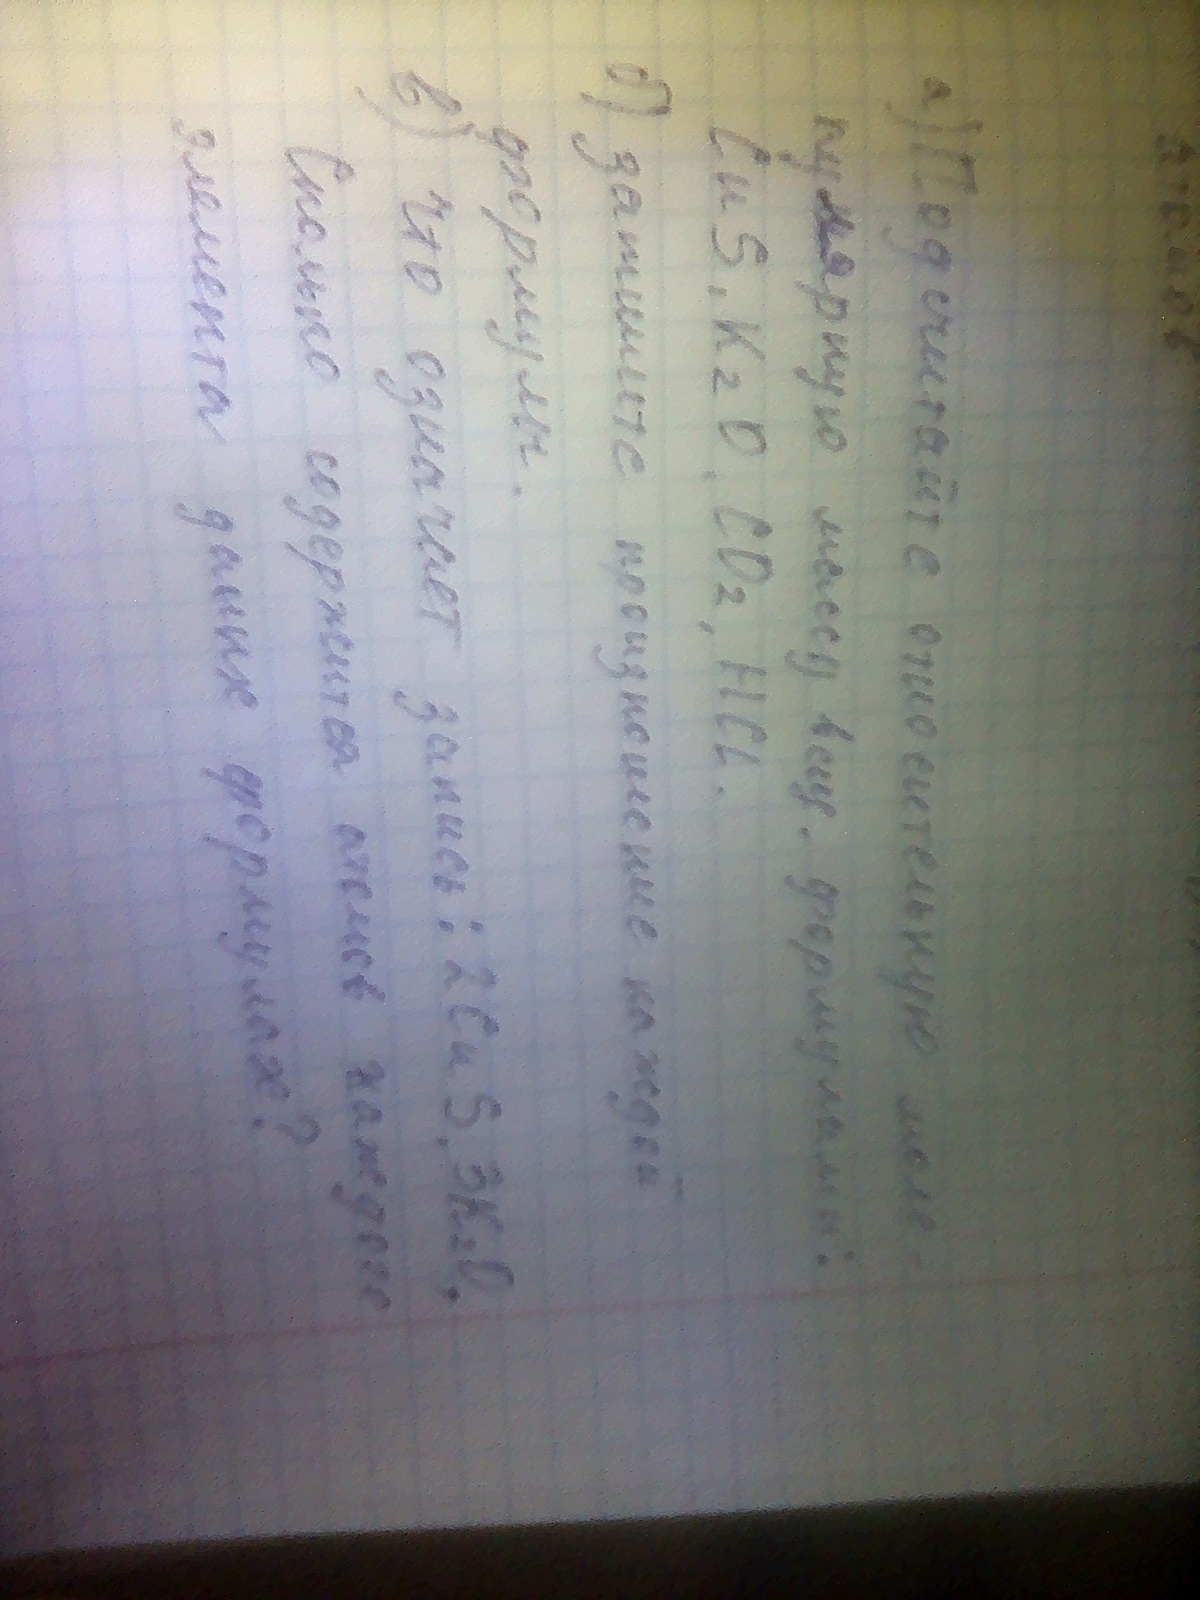 а) Подсчитайте относительную моле-
кулярную массу вещ. формулами:
CuS, K2O, CO2, HCl.
б) запишите произношение каждой
формулы.
в) что означает запись: 2CuS, 3K2O,
Сколько содержится атомов каждого
элемента даных формулах?